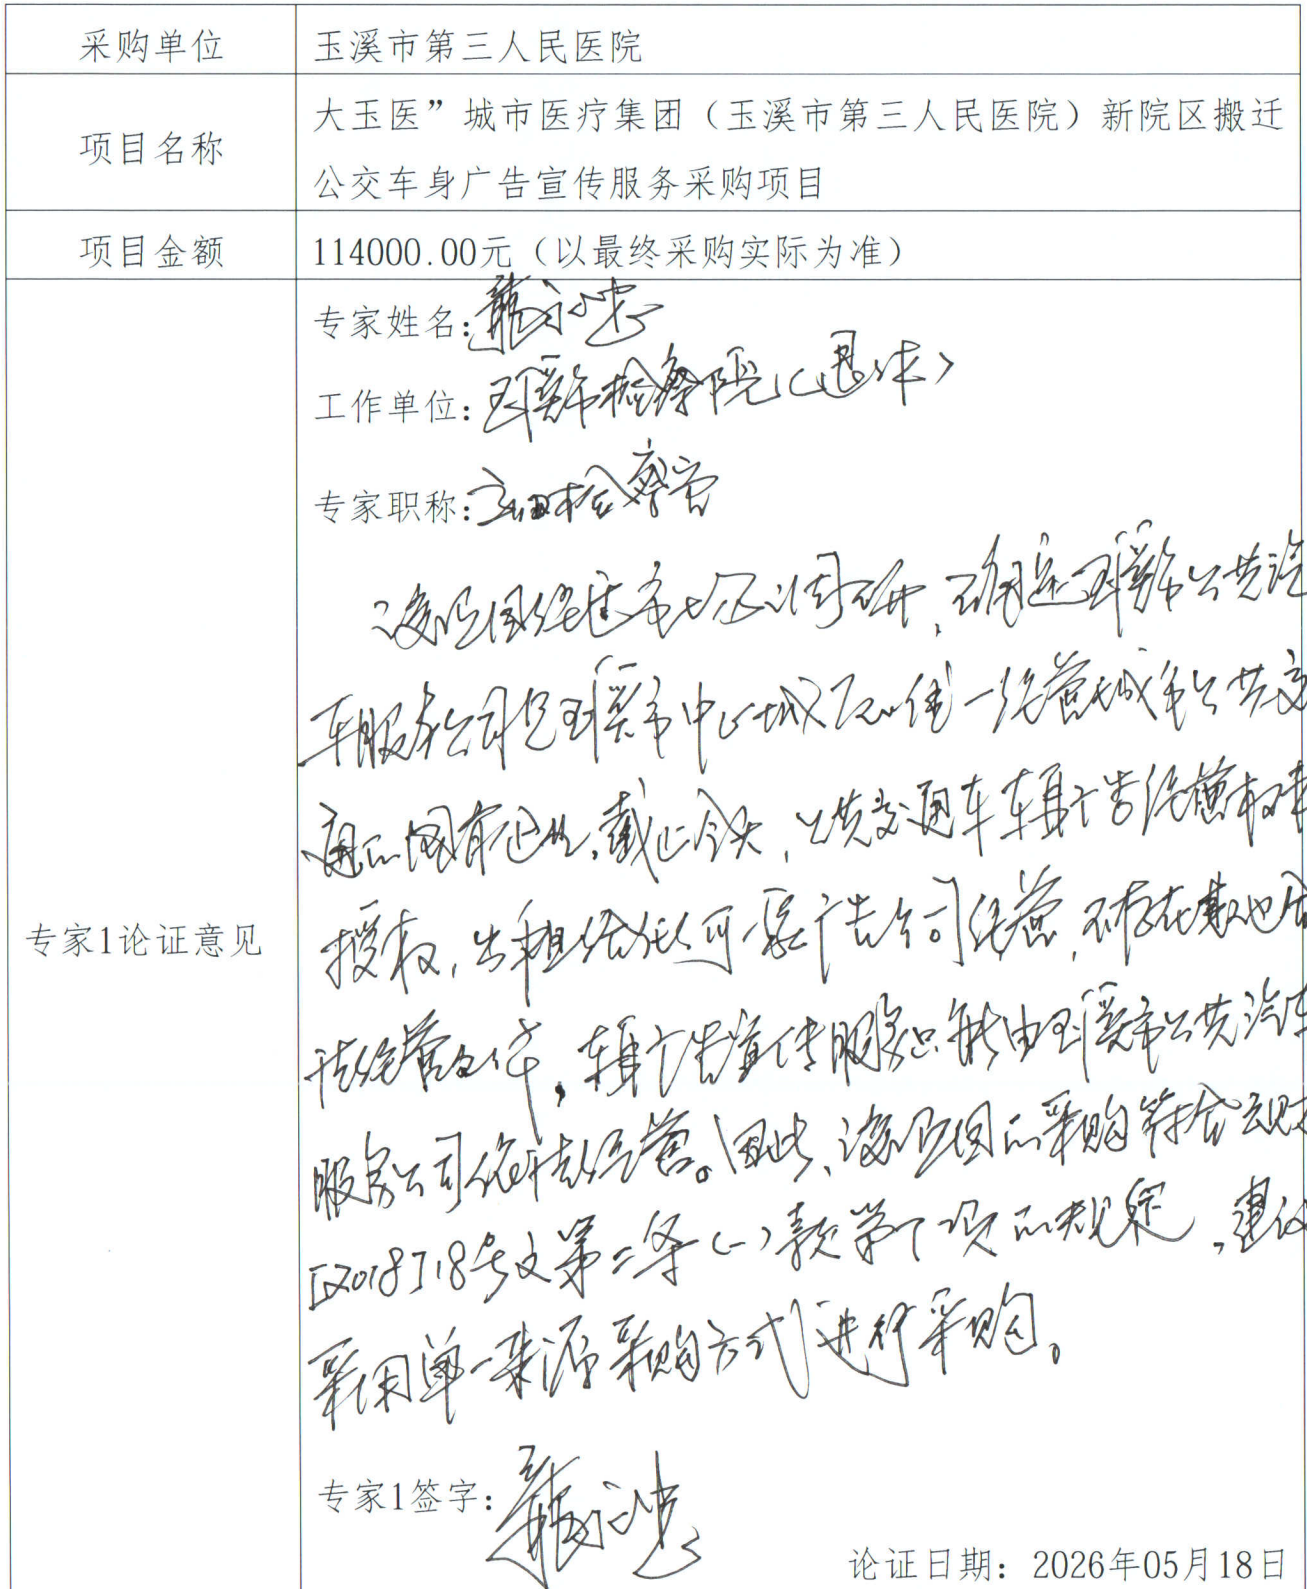 采购单位
玉溪市第三人民医院
项目名称
大玉医”城市医疗集团（玉溪市第三人民医院）新院区搬迁
公交车身广告宣传服务采购项目
项目金额
114000.00元（以最终采购实际为准）
专家1论证意见
专家姓名：
工作单位：玉溪市检察院（退休）
专家职称：检察官
该项目经过市场调研，确定玉溪市公共汽
车服务公司是玉溪市中心城区唯一经营城市公共交
通的国有企业，截止今天，公共交通车车身广告经营权未
授权，出租给任何一家广告公司经营，不存在其他
经营，车身广告宣传服务只能由玉溪市公共汽车
服务公司依法经营。因此，该项目的采购符合云财
[2018]18号文第二条（一）款第1项的规定，建议
采用单一来源采购方式进行采购。
专家1签字：
论证日期：2026年05月18日